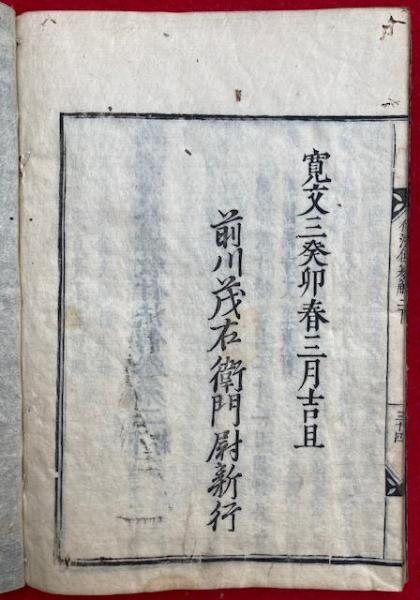 寛文三癸卯春三月吉旦
前川茂右衛門尉新行
三十四